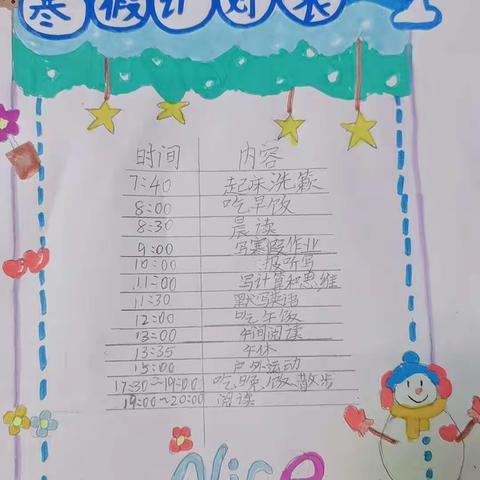 寒假计划表
时间 内容
7:40 起床洗簌
8:00 吃早饭
8:30 晨读
9:00 写寒假作业
10:00 报听写
11:00 写计算和思维
11:30 默写英语
12:00 吃午饭
13:00 午间阅读
13:35 午休
15:00 户外运动
17:30~19:00 吃晚饭,散步
19:00~20:00 阅读
Nice